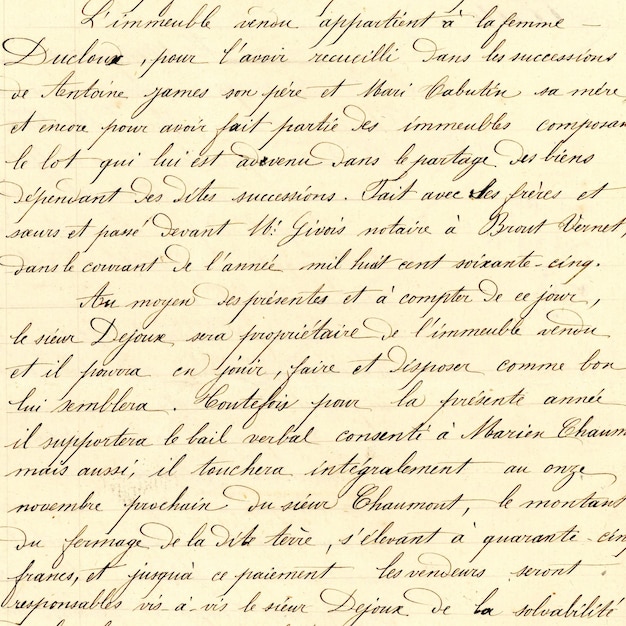 L'immeuble vendu appartient à la femme —
Ducloux, pour l'avoir recueilli dans les successions
de Antoine James son père et Mari Cabutin sa mère
et encore pour avoir fait partie des immeubles composan
le lot qui lui est advenu dans le partage des biens
dépendant des dites successions. Fait avec ses frères et
sœurs et passé devant Me Givois notaire à Brout Vernet,
dans le courant de l'année mil huit cent soixante-cinq.
Au moyen des présentes et à compter de ce jour,
le sieur Dejoux sera propriétaire de l'immeuble vendu
et il pourra en jouir, faire et disposer comme bon
lui semblera. Toutefois pour la présente année
il supportera le bail verbal consenti à Marien Chaum
mais aussi, il touchera intégralement au onze
novembre prochain du sieur Chaumont, le montant
du fermage de la dite terre, s'élevant à quarante-cinq
francs, et jusqu'à ce paiement les vendeurs seront
responsables vis-à-vis le sieur Dejoux de la solvabilité